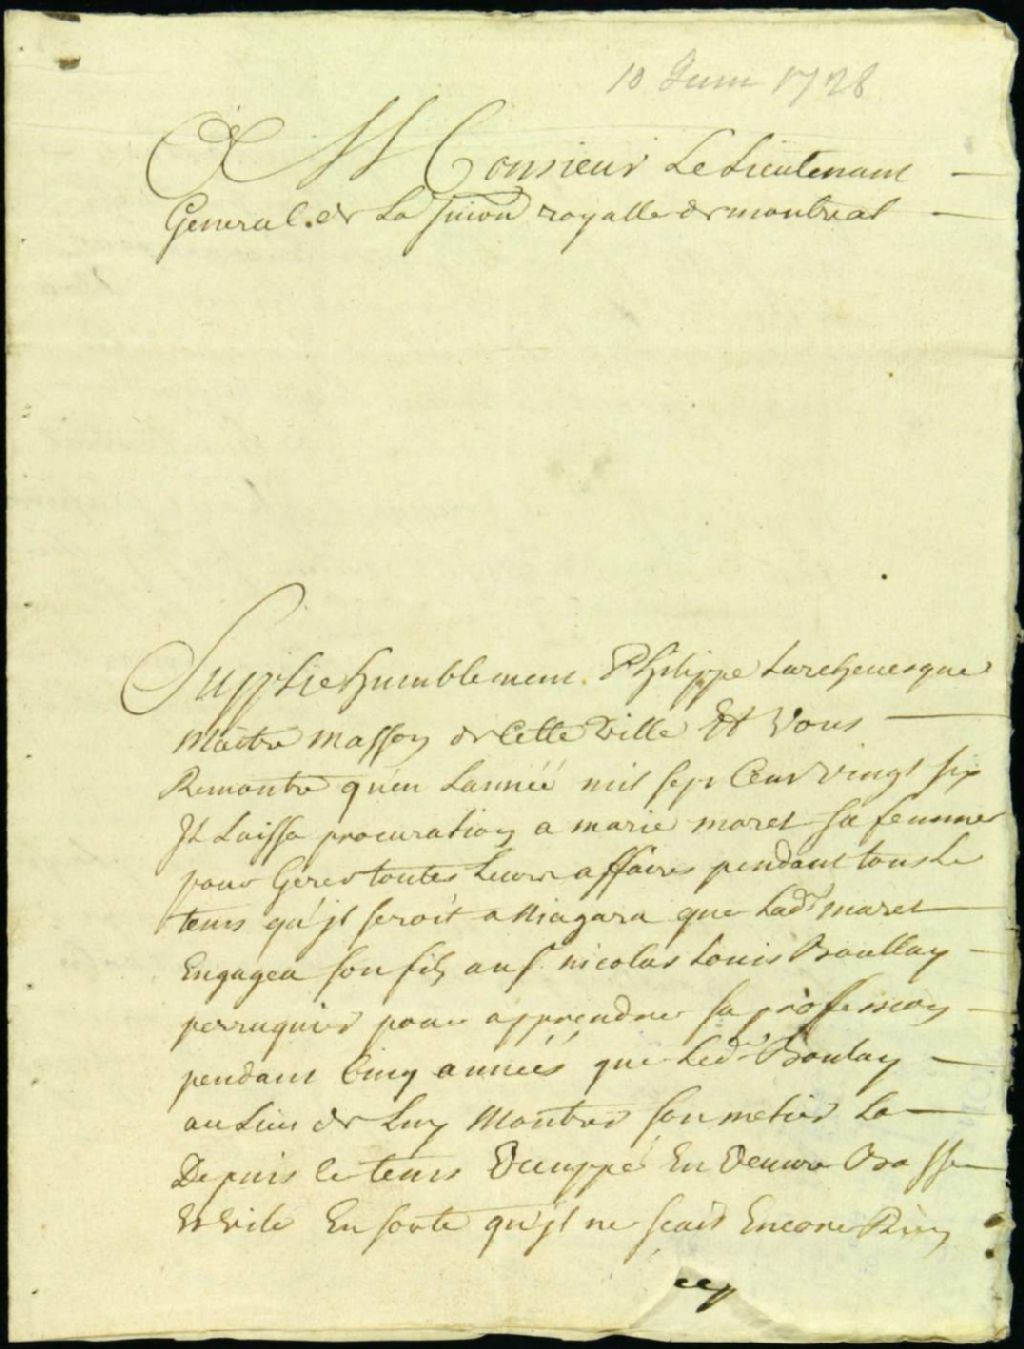 10 Juin 1728
A Monsieur Le Lieutenant
General de La Jurion royalle de montreal
Supplie humblement Philippe Larcheuesque
Maitre masson de Cette Ville Et Vous
Remontre qu'en L'année mil sept Cent vingt six
Jl Laissa procuration a marie maret sa femme
pour Gerer toutes Leurs affaires pendant tous Le
tems qu'jl seroit a Niagara que Ladte maret
Engagea son fils au sr nicolas Louis Boullay
perruquier pour apprendre sa profession
pendant Cinq années que Ledt Boulay
au Lieu de Luy Montrer son metier La
Depuis le tems Ocuppé En Oeuvre Basse
Et Vile En sorte qu'jl ne scait Encore Rien